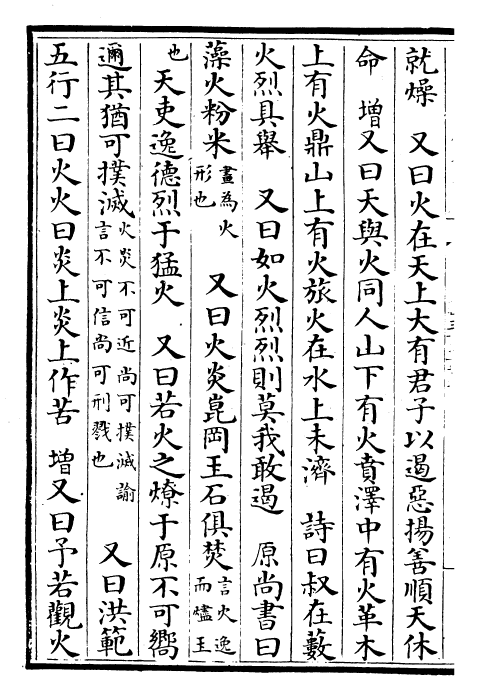 就燥　又曰火在天上大有君子以遏惡揚善順天休
命　增又曰天與火同人山下有火賁澤中有火革木
上有火鼎山上有火旅火在水上未濟　詩曰叔在藪
火烈具舉　又曰如火烈烈則莫我敢遏　原尚書曰
藻火粉米畫為火形也　又曰火炎崑岡玉石俱焚言火逸而燼玉
也　天吏逸德烈于猛火　又曰若火之燎于原不可嚮
邇其猶可撲滅火炎不可近尚可撲滅諭言不可信尚可刑戮也　又曰洪範
五行二曰火火曰炎上炎上作苦　增又曰予若觀火